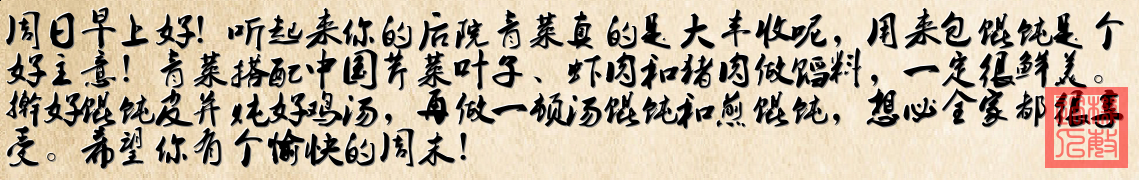 周日早上好！听起来你的后院青菜真的是大丰收呢，用来包馄饨是个
好主意！青菜搭配中国芹菜叶子、虾肉和猪肉做馅料，一定很鲜美。
擀好馄饨皮并炖好鸡汤，再做一顿汤馄饨和煎馄饨，想必全家都很享
受。希望你有个愉快的周末！